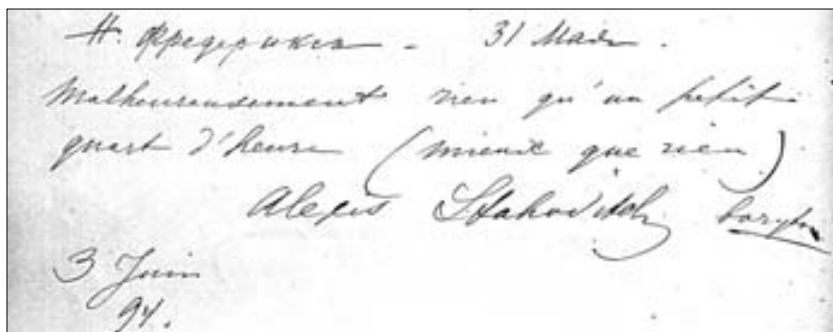 Н. Фредерикс - 31 Мая.
Malheureusement rien qu'un petit
quart d'heure (mieux que rien)
Alexis Stakovitch
3 Juin
94.